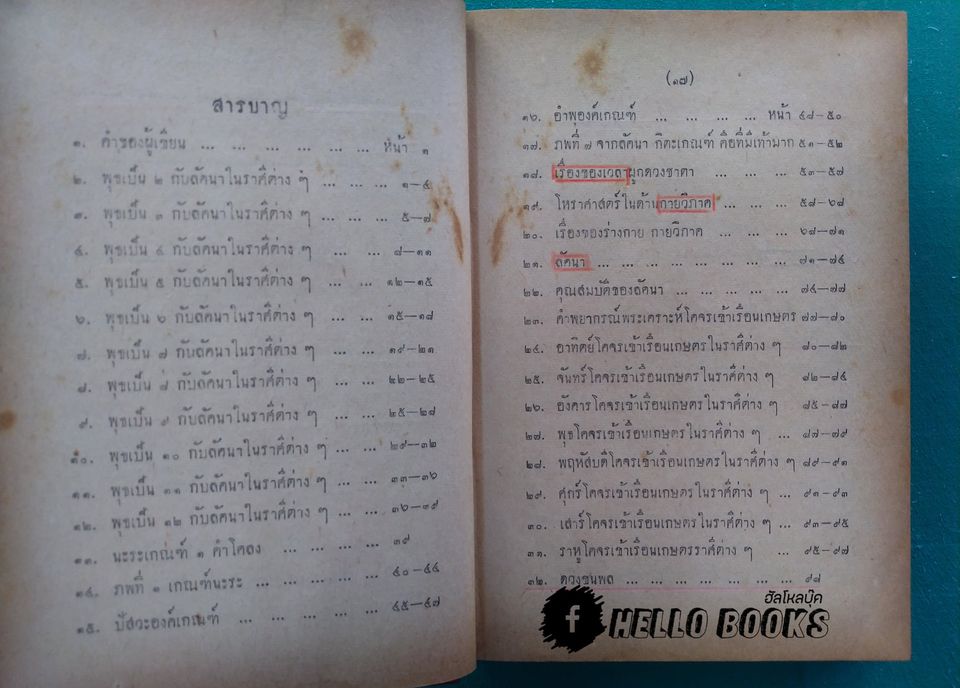 สารบาญ
๑. คำของผู้เขียน ... ... ... ... ... ... หน้า ๑
๒. พุธเป็น ๒ กับลัคนาในราศีต่าง ๆ ... ... ๑—๕
๓. พุธเป็น ๓ กับลัคนาในราศีต่าง ๆ ๕—๗
๔. พุธเป็น ๔ กับลัคนาในราศีต่าง ๆ ... ... ๘—๑๑
๕. พุธเป็น ๕ กับลัคนาในราศีต่าง ๆ ... ... ๑๒—๑๕
๖. พุธเป็น ๖ กับลัคนาในราศีต่าง ๆ ... ... ๑๕—๑๘
๗. พุธเป็น ๗ กับลัคนาในราศีต่าง ๆ ... ... ๑๙—๒๑
๘. พุธเป็น ๘ กับลัคนาในราศีต่าง ๆ ... ... ๒๒—๒๕
๙. พุธเป็น ๙ กับลัคนาในราศีต่าง ๆ ... ... ๒๕—๒๘
๑๐. พุธเป็น ๑๐ กับลัคนาในราศีต่าง ๆ ... ... ๒๙—๓๒
๑๑. พุธเป็น ๑๑ กับลัคนาในราศีต่าง ๆ ... ... ๓๓—๓๖
๑๒. พุธเป็น ๑๒ กับลัคนาในราศีต่าง ๆ ... ... ๓๖—๓๙
๑๓. นะระเกณฑ์ ๑ คำโคลง ... ... ... ... ๓๙
๑๔. ภพที่ ๑ เกณฑ์นะระ ... ... ... ... ... ๔๐—๔๔
๑๕. ปัสวะองค์เกณฑ์ ... ... ... ... ๔๕—๔๗
(๑๗)
๑๖. อำพุองค์เกณฑ์ ... ... ... ... หน้า ๔๘—๕๐
๑๗. ภพที่ ๗ จากลัคนา กีตะเกณฑ์ คือที่มีเท้ามาก ๕๑—๕๒
๑๘. เรื่องของเวลาผูกดวงชาตา ... ... ... ๕๓—๕๗
๑๙. โหราศาสตร์ในด้านกายวิภาค ... ... ... ๕๘—๖๘
๒๐. เรื่องของร่างกาย กายวิภาค ... ... ... ๖๘—๗๑
๒๑. ลัคนา ... ... ... ... ... ... ... ... ๗๑—๗๔
๒๒. คุณสมบัติของลัคนา ... ... ... ... ... ๗๔—๗๗
๒๓. คำพยากรณ์พระเคราะห์โคจรเข้าเรือนเกษตร ๗๗—๘๐
๒๔. อาทิตย์โคจรเข้าเรือนเกษตรในราศีต่าง ๆ ๘๐—๘๒
๒๕. จันทร์โคจรเข้าเรือนเกษตรในราศีต่าง ๆ ๘๒—๘๔
๒๖. อังคารโคจรเข้าเรือนเกษตรในราศีต่าง ๆ ... ๘๕—๘๗
๒๗. พุธโคจรเข้าเรือนเกษตรในราศีต่าง ๆ ... ๘๗—๘๙
๒๘. พฤหัสบดีโคจรเข้าเรือนเกษตรในราศีต่าง ๆ ๘๙—๙๑
๒๙. ศุกร์โคจรเข้าเรือนเกษตรในราศีต่าง ๆ ... ๙๑—๙๓
๓๐. เสาร์โคจรเข้าเรือนเกษตรในราศีต่าง ๆ ... ๙๓—๙๕
๓๑. ราหูโคจรเข้าเรือนเกษตรราศีต่าง ๆ ... ๙๕—๙๗
๓๒. ดวงขุนพล ... ... ... ... ... ... ... ๙๘
ฮัลโหลบุ๊ค
f HELLO BOOKS